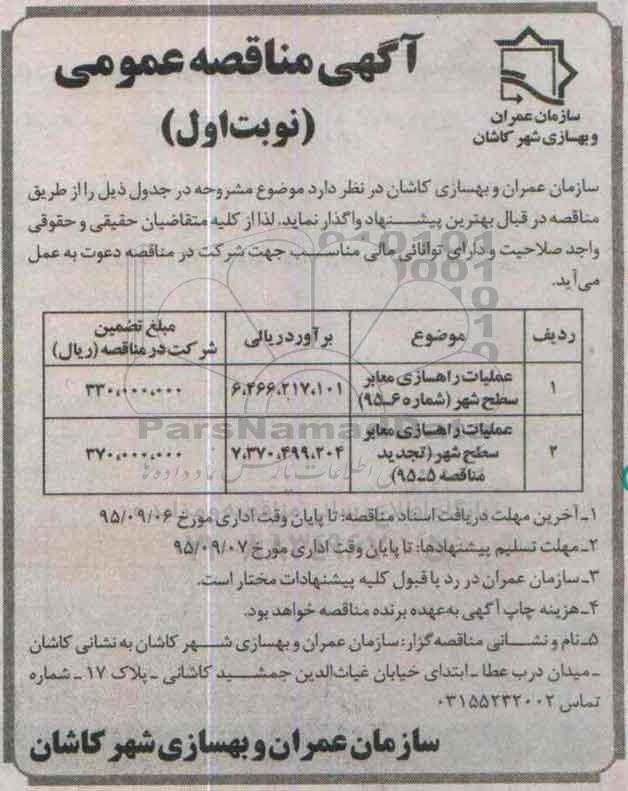 آگهی مناقصه عمومی
(نوبت اول)
سازمان عمران
و بهسازی شهر کاشان
سازمان عمران و بهسازی کاشان در نظر دارد موضوع مشروحه در جدول ذیل را از طریق
مناقصه در قبال بهترین پیشنهاد واگذار نماید. لذا از کلیه متقاضیان حقیقی و حقوقی
واجد صلاحیت و دارای توانائی مالی مناسب جهت شرکت در مناقصه دعوت به عمل
می‌آید.
ردیف موضوع برآورد ریالی مبلغ تضمین
شرکت در مناقصه (ریال)
۱ عملیات راهسازی معابر
سطح شهر (شماره ۶ـ۹۵) ۶،۴۶۶،۲۱۷،۱۰۱ ۳۳۰،۰۰۰،۰۰۰
۲ عملیات راهسازی معابر
سطح شهر (تجدید
مناقصه ۵ـ۹۵) ۷،۳۷۰،۴۹۹،۲۰۴ ۳۷۰،۰۰۰،۰۰۰
ParsNamad
۱ـ آخرین مهلت دریافت اسناد مناقصه: تا پایان وقت اداری مورخ ۹۵/۰۹/۰۶
۲ـ مهلت تسلیم پیشنهادها: تا پایان وقت اداری مورخ ۹۵/۰۹/۰۷
۳ـ سازمان عمران در رد یا قبول کلیه پیشنهادات مختار است.
۴ـ هزینه چاپ آگهی به‌عهده برنده مناقصه خواهد بود.
۵ـ نام و نشانی مناقصه‌گزار: سازمان عمران و بهسازی شهر کاشان به نشانی کاشان
ـ میدان درب عطا ـ ابتدای خیابان غیاث‌الدین جمشید کاشانی ـ پلاک ۱۷ ـ شماره
تماس ۰۳۱۵۵۲۳۲۰۰۲
سازمان عمران و بهسازی شهر کاشان